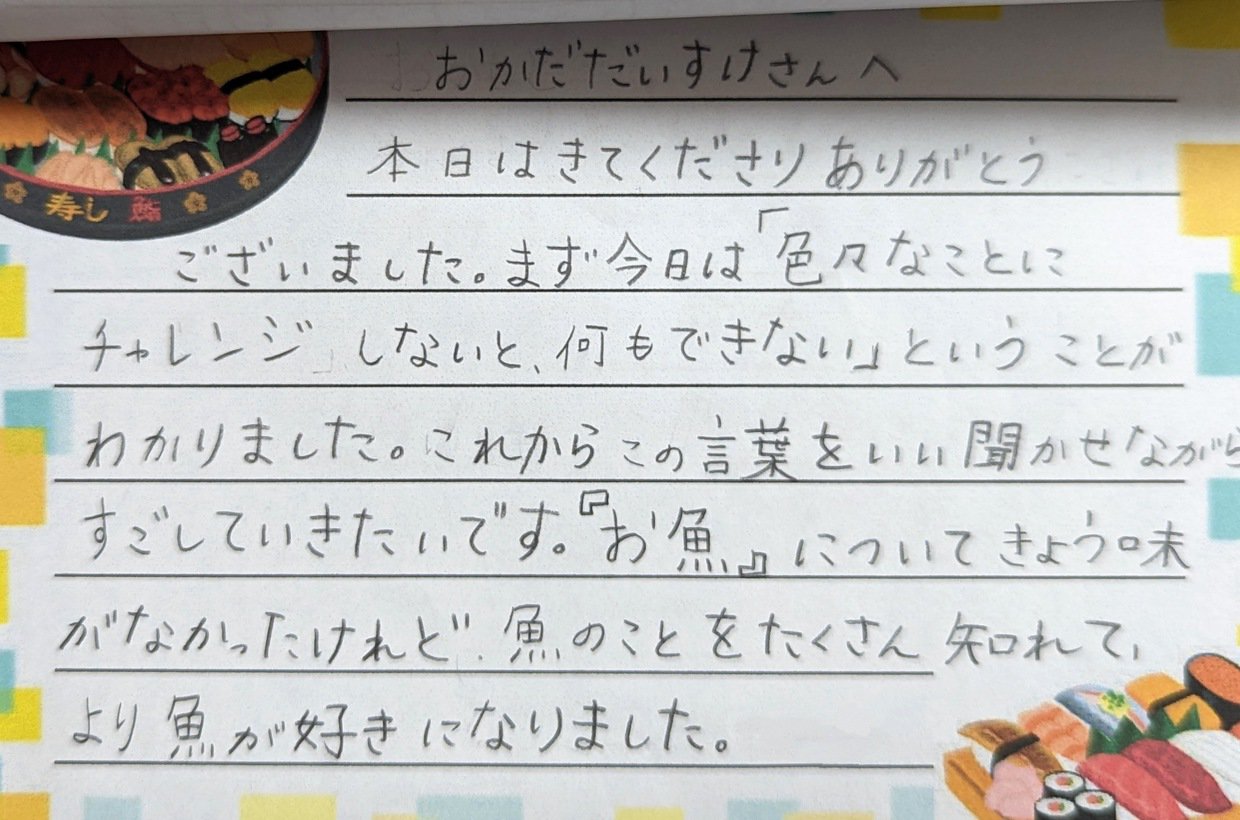 おかだだいすけさんへ
本日はきてくださりありがとう
ございました。まず今日は「色々なことに
チャレンジしないと、何もできない」ということが
わかりました。これからこの言葉をいい聞かせながら
すごしていきたいです。『お魚』についてきょう味
がなかったけれど、魚のことをたくさん知れて、
より魚が好きになりました。
寿し 鮨